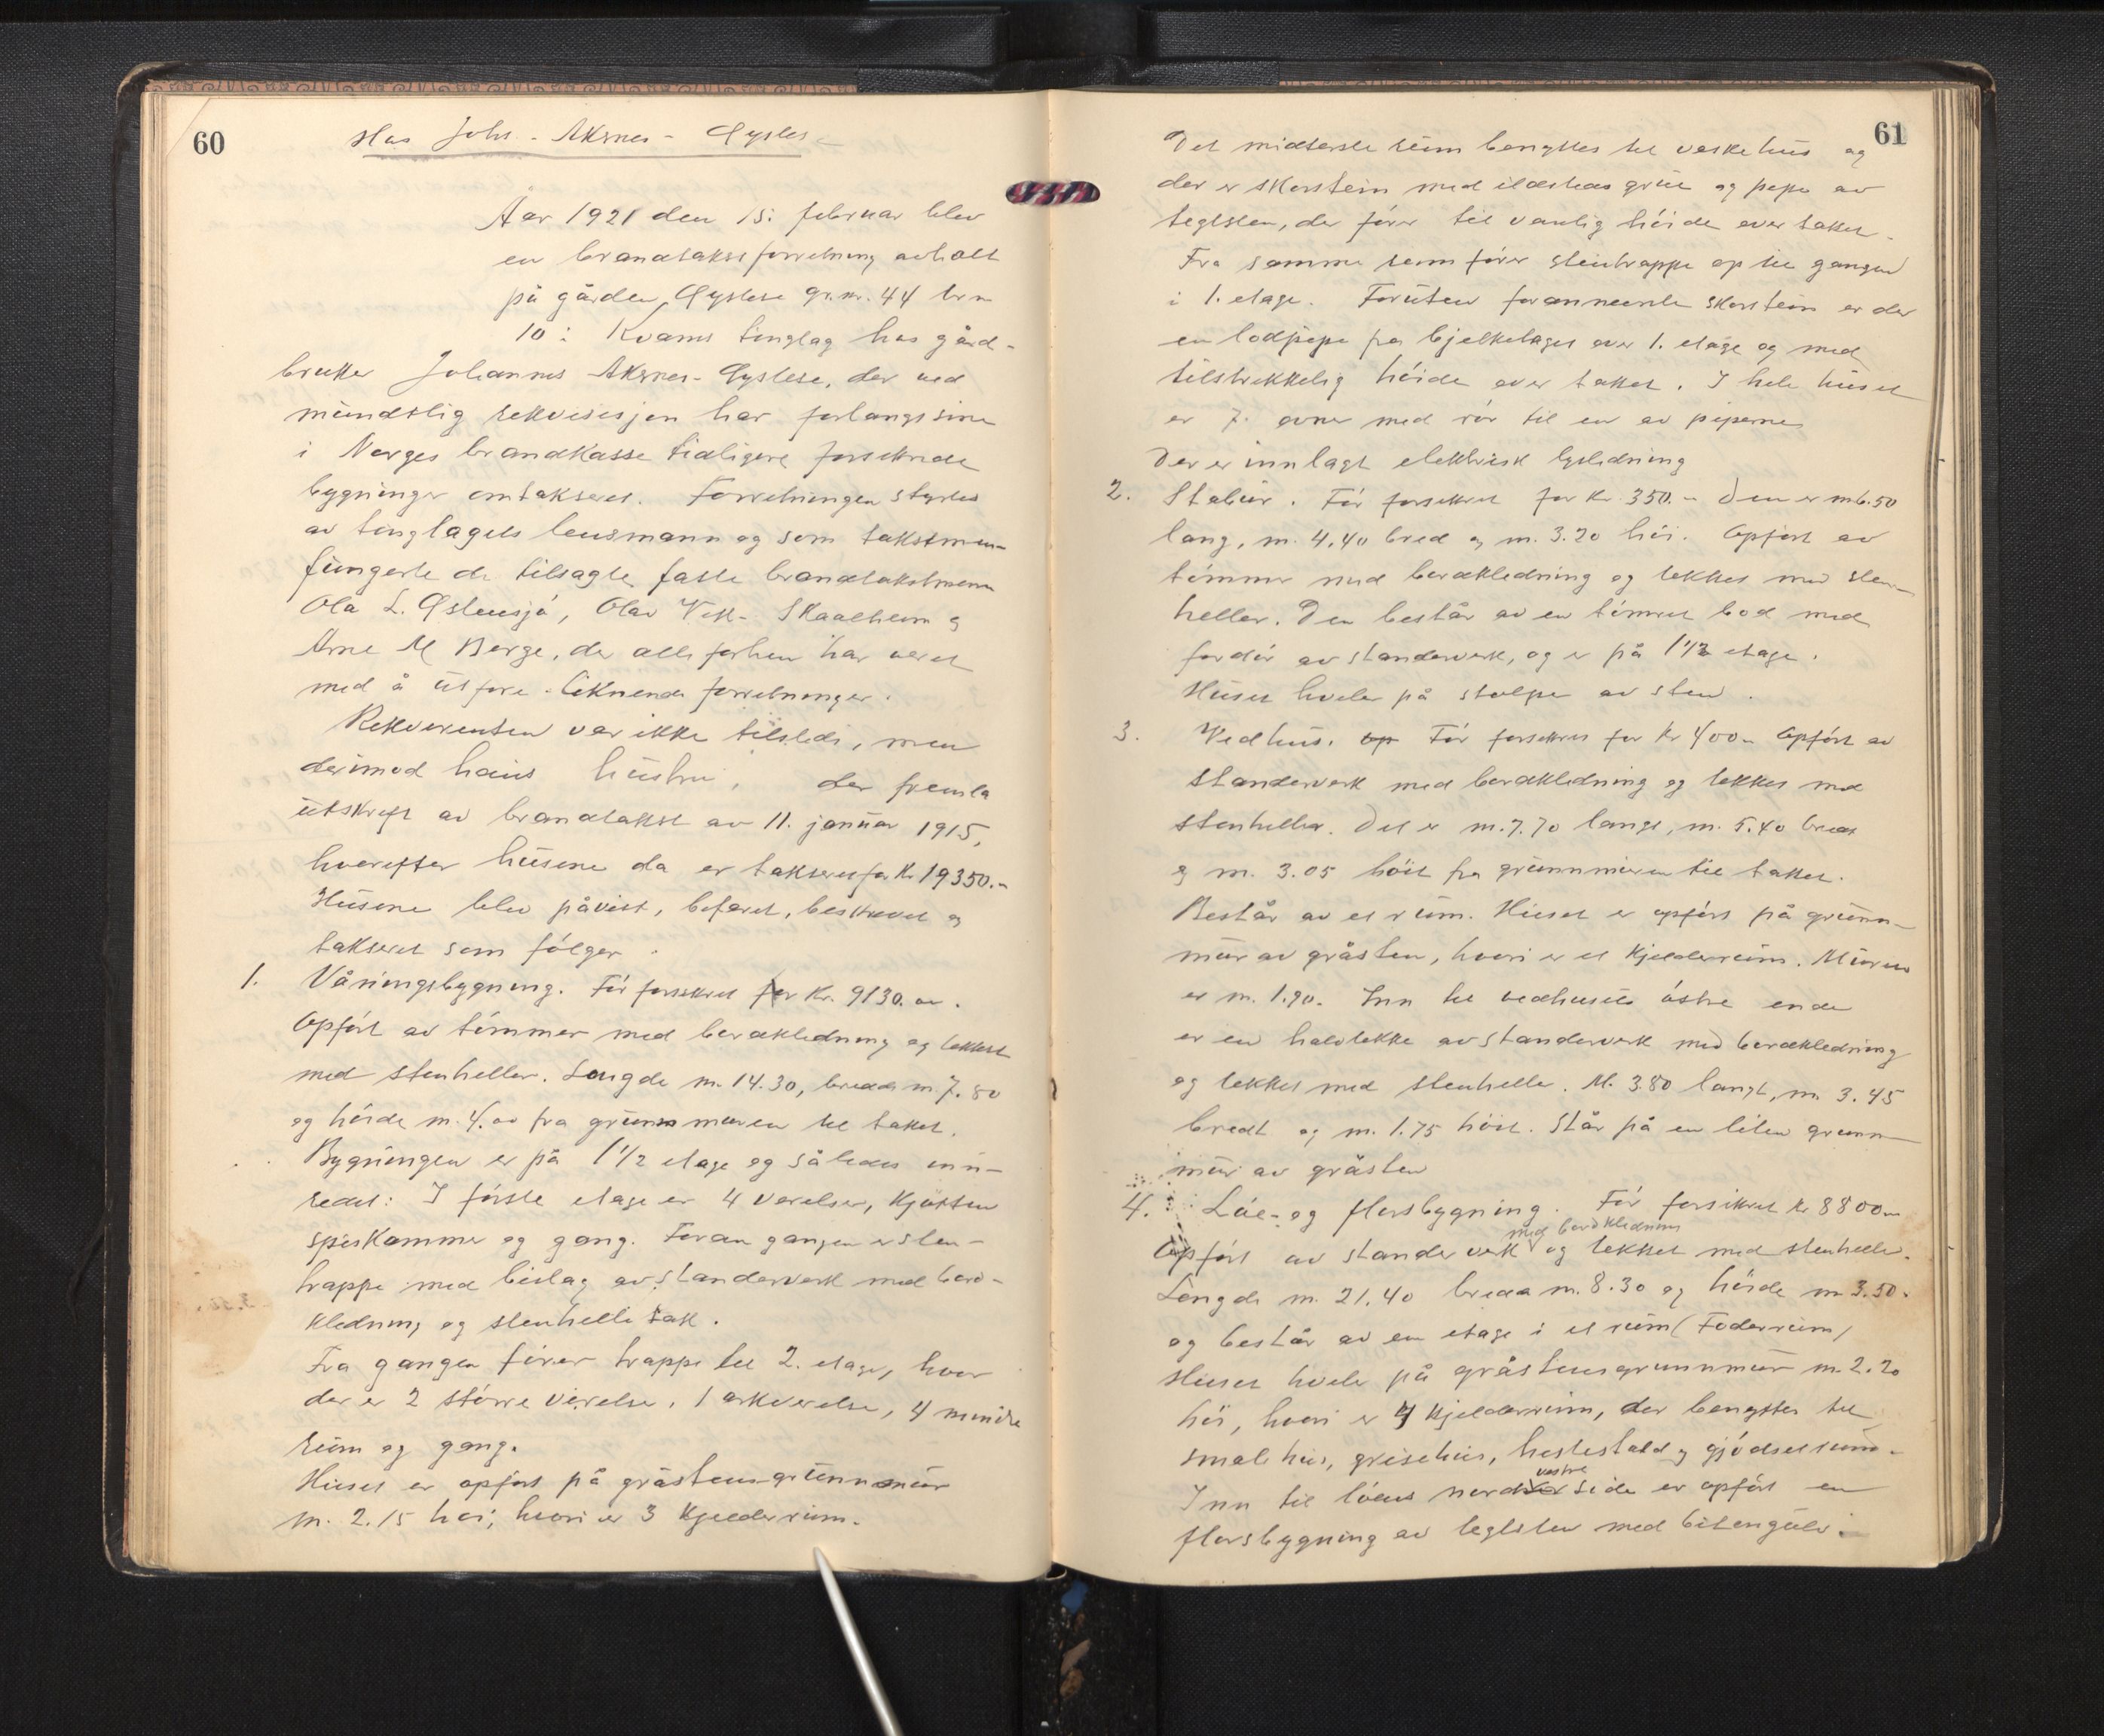 60
Hos Johs. Aksnes - Øystese
Aar 1921 den 15. februar blev
en brandtakstforretning avholt
på gården Øystese gr.nr. 44 br.n
10 i Kvams tinglag hos gård-
bruker Johannes Aksnes-Øystese, der ved
mundtlig rekvisisjon har forlangt sine
i Norges brandkasse tidligere forsikrede
bygninger omtakseret. Forretningen styrtes
av tinglagets lensmann og som takstmenn
fungerte de tilsagte faste brandtakstmenn
Ola L. Østensjö, Olav Vik-Skaalheim og
Arne M Berge, der alle forhen har været
med å utföre liknende forretninger.
Rekvirenten var ikke tilstede, men
derimod hans hustru, der fremla
utskrift av brandtakst av 11. januar 1915,
hvorefter husene da er takseret for Kr 19350.-
Husene blev påvist, befaret, beskrevet og
takseret som fölger.
1. Våningsbygning. För forsikret for Kr. 9130.00.
Opfört av tömmer med bordkledning og tekket
med stenheller. Lengde m. 14.30, bredde m 7.80
og höide m. 4.00 fra grunnmuren til taket.
Bygningen er på 1 1/2 etage og således inn-
redet: I förste etage er 4 værelser, kjökken
spiskammer og gang. Foran gangen er sten-
trappe med bislag av standerverk med bord-
kledning og stenhelle tak.
Fra gangen förer trappe til 2. etage, hvor
der er 2 större værelse, 1 arkverelse, 4 mindre
rum og gang.
Huset er opfört på gråstens grunnmur
m. 2.15 höi, hvori er 3 kjelderrum.
61
Det midterste rum benyttes til vaskehus og
der er skorstein med ildsteds grue og pipe av
teglsten, der förer til vanlig höide over taket.
Fra samme rum förer steintrappe op til gangen
i 1. etage. Foruten forannevnte skorstein er der
en lodpipe fra bjelkelaget over 1. etage og med
tilstrekkelig höide over taket. I hele huset
er 7 ovner med rör til en av piperne
Der er innlagt elektrisk lysledning
2. Stabur. För forsikret for kr. 350.- Den er m 6.50
lang, m. 4.40 bred og m. 3.20 höi. Opfört av
tömmer med bordkledning og tekket med sten-
heller. Den består av en tömret bod med
fordör av standerverk, og er på 1 1/2 etage.
Huset hviler på stolper av sten.
3. Vedhus. op För forsikret for kr 400.- Opfört av
standerverk med bordkledning og tekket med
stenheller. Det er m. 7.70 langt, m. 5.40 bredt
og m. 3.05 höit fra grunnmuren til taket.
Består av et rum. Huset er opfört på grunn-
mur av gråsten, hvori er et kjelderrum. Muren
er m. 1.90. Inn til vedhusets östre ende
er en halvtekke av standerverk med bordkledning
og tekket med stenhelle. M. 3.80 langt, m. 3.45
bredt og m. 1.75 höit. Står på en liten grunn-
mur av gråsten
4. Löe- og florsbygning. För forsikret kr 8800.-
med bordkledning
Opfört av standerverk og tekket med stenhelle.
Lengde m. 21.40 bredde m. 8.30 og höide m 3.50.
og består av en etage i et rum (Foderrum)
Huset hviler på gråstensgrunnmur m. 2.20
höi, hvori er 4 kjelderrum, der benyttes til
smalehus, grisehus, hestestald og gjödselrum.
vestre
Inn til löens nord side er opfört en
florsbygning av teglsten med betongulv.